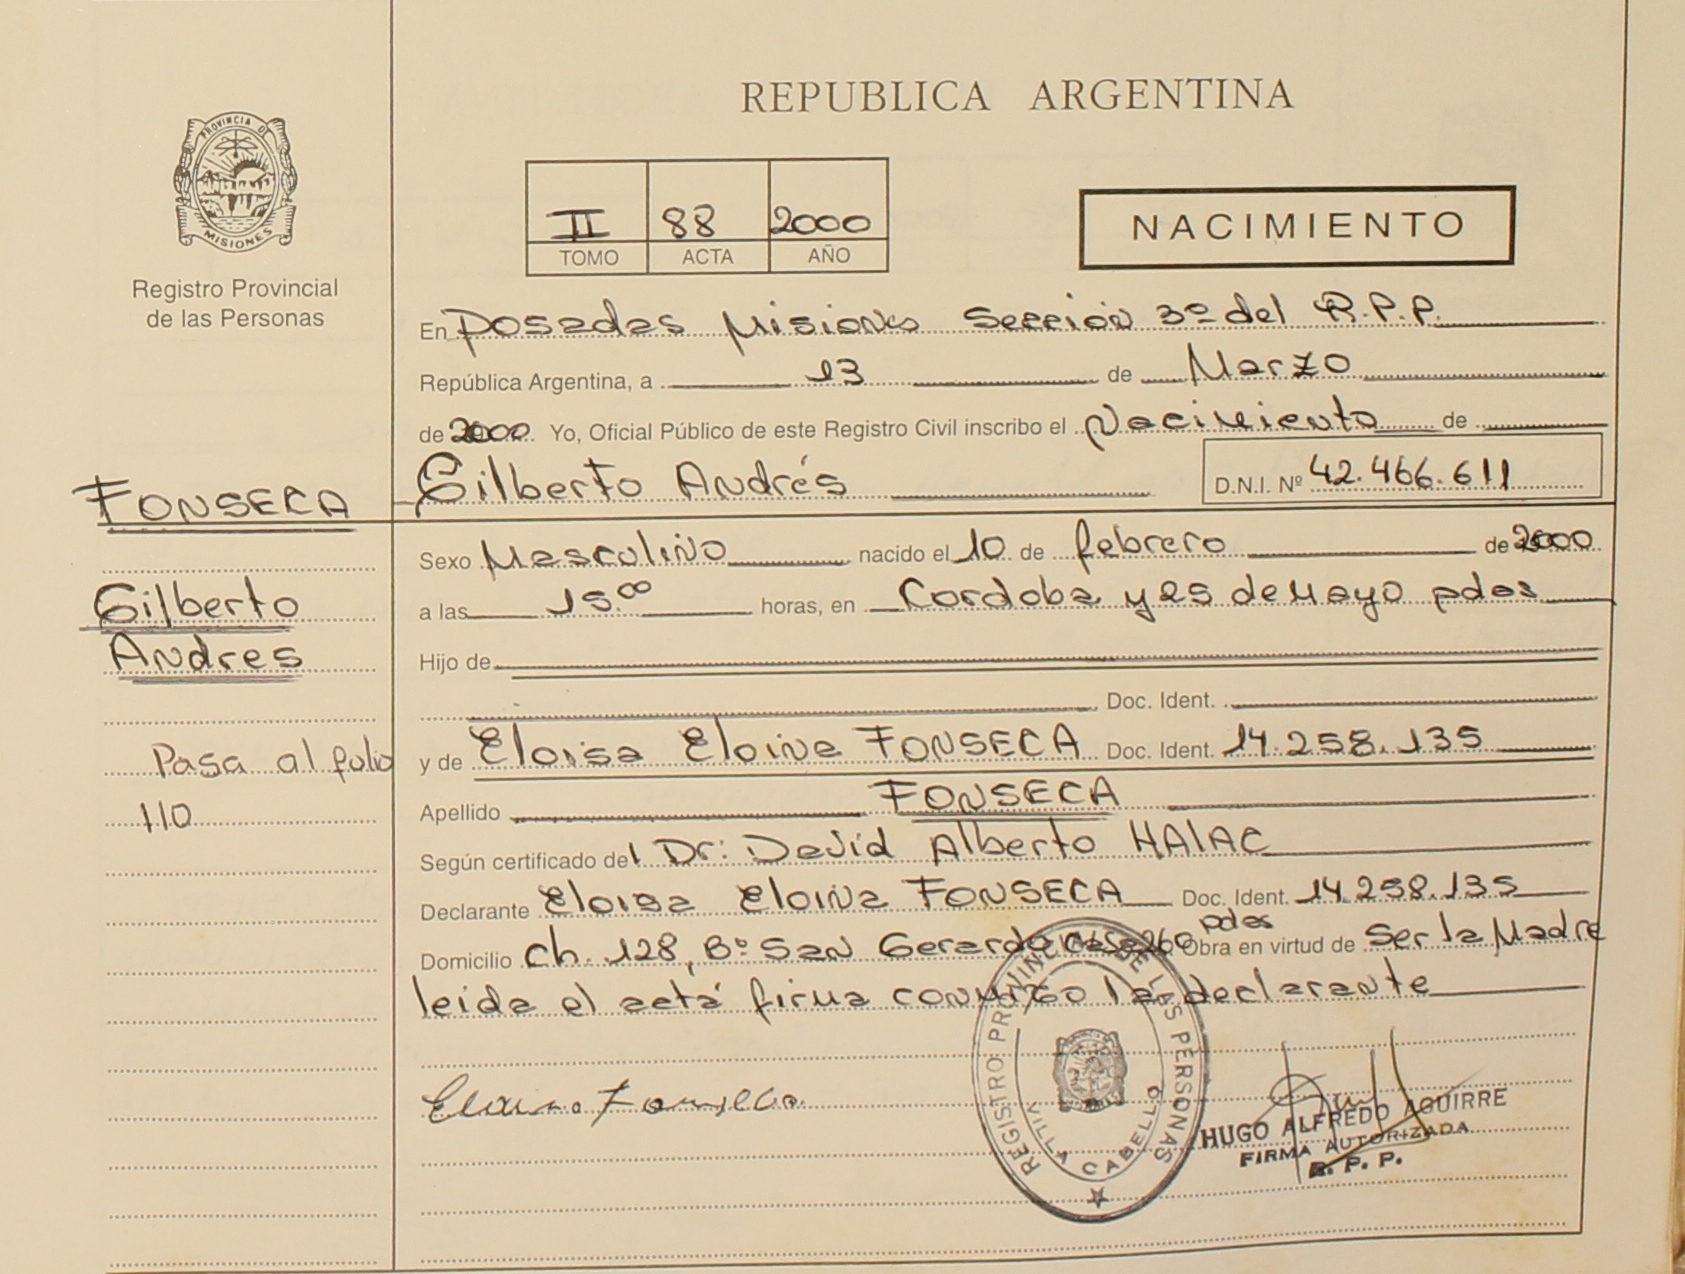 REPUBLICA ARGENTINA
PROVINCIA DE
MISIONES
Registro Provincial
de las Personas
II 88 2000
TOMO ACTA AÑO
NACIMIENTO
En Posadas Misiones Sección 3º del R.P.P.
República Argentina, a 13 de Marzo
de 2000 Yo, Oficial Público de este Registro Civil inscribo el Nacimiento de
Gilberto Andrés D.N.I. Nº 42.466.611
FONSECA
Sexo Masculino nacido el 10 de febrero de 2000
Gilberto
a las 15.00 horas, en Cordoba y 25 de Mayo pdas
Andres
Hijo de
Doc. Ident.
Pasa al folio
y de Eloisa Eloina FONSECA Doc. Ident. 14.258.135
110
Apellido FONSECA
Según certificado del Dr: David Alberto HALAC
Declarante Eloisa Eloina FONSECA Doc. Ident. 14.258.135
Domicilio Ch. 128, Bº San Gerardo casa 260 pdas Obra en virtud de Ser la Madre
leida el acta firma conmigo la declarante
REGISTRO PROVINCIAL DE LAS PERSONAS
VILLA CABELLO
Fonseca
HUGO ALFREDO AGUIRRE
FIRMA AUTORIZADA
R. P. P.